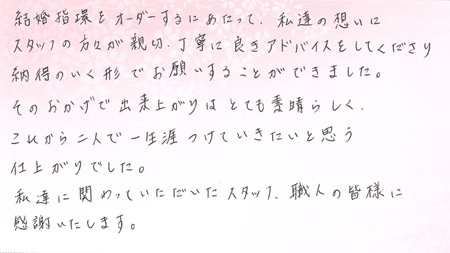 結婚指環をオーダーするにあたって、私達の想いに
スタッフの方々が親切、丁寧に良きアドバイスをしてくださり
納得のいく形でお願いすることができました。
そのおかげで出来上がりはとても素晴らしく、
これから二人で一生涯つけていきたいと思う
仕上がりでした。
私達に関わっていただいたスタッフ、職人の皆様に
感謝いたします。